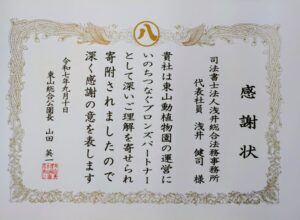 八
感謝状
司法書士法人浅井総合法務事務所
代表社員 浅井 健司 様
貴社は東山動植物園の運営に
いのちつなぐブロンズパートナー
として深いご理解を寄せられ
寄附されましたので
深く感謝の意を表します
令和七年九月十日
東山総合公園長 山田 英一